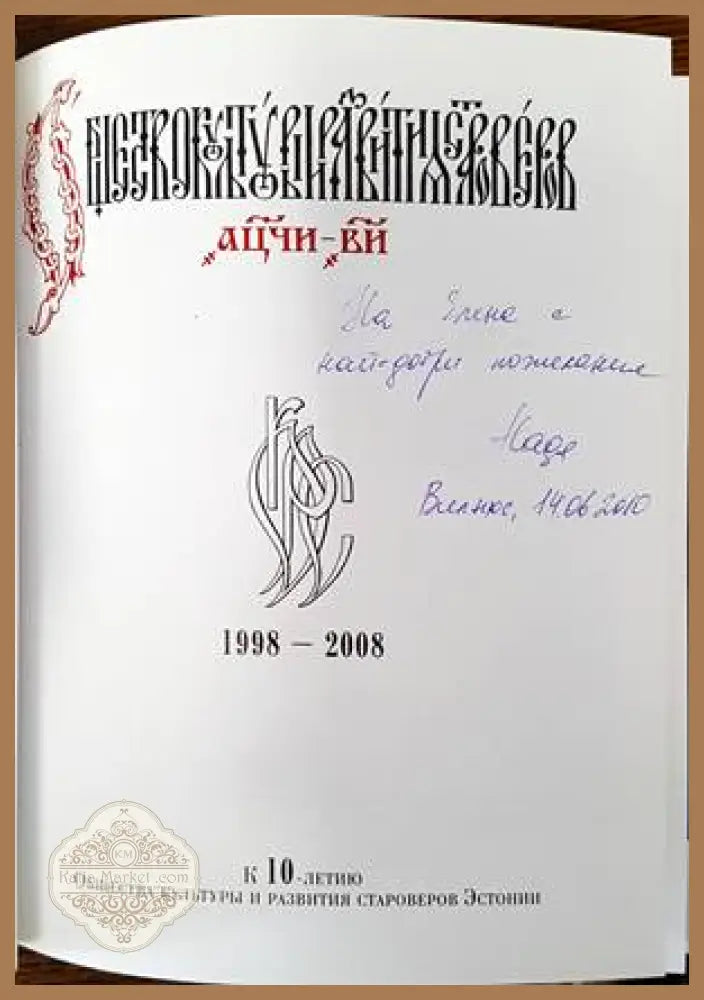 Общество культуры и развития староверов
АЦЧИ–ВИ
На Елена с
най-добри пожелания
Надя
Вилнюс, 14.06 2010
1998 – 2008
К 10-летию
Общества культуры и развития староверов Эстонии
KM
Katie Market .com